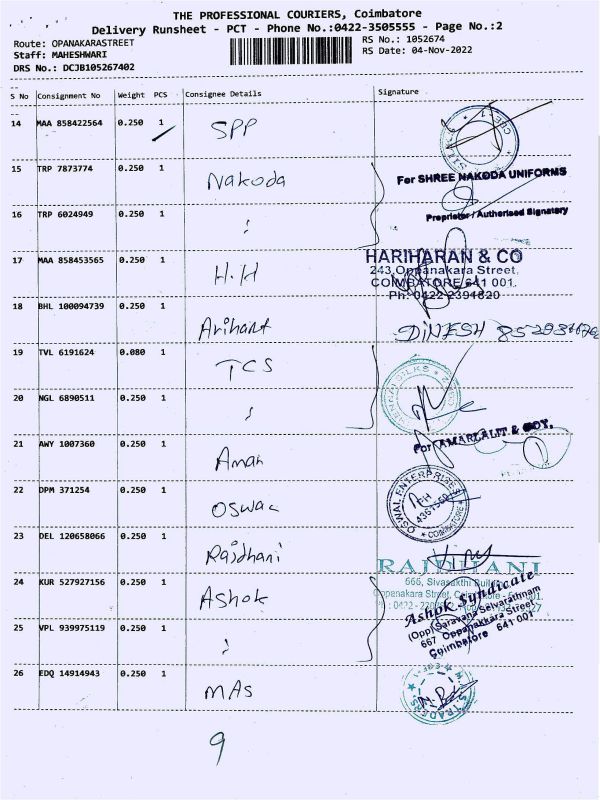 THE PROFESSIONAL COURIERS, Coimbatore
Delivery Runsheet - PCT - Phone No.:0422-3505555 - Page No.:2
Route: OPANAKARASTREET
RS No.: 1052674
Staff: MAHESHWARI
RS Date: 04-Nov-2022
DRS No.: DCJB105267402
S No Consignment No Weight PCS Consignee Details Signature
14 MAA 858422564 0.250 1 SPP
15 TRP 7873774 0.250 1 Nakoda
For SHREE NAKODA UNIFORMS
Proprietor / Authorised Signatory
16 TRP 6024949 0.250 1
17 MAA 858453565 0.250 1 H.H
HARIHARAN & CO
243, Oppanakara Street,
COIMBATORE 641 001.
Ph: 0422 2394820
18 BHL 100094739 0.250 1 Arihant DINESH
19 TVL 6191624 0.080 1 TCS
20 NGL 6890511 0.250 1
21 AWY 1007360 0.250 1 Aman
For AMARLALIT & COY.
22 DPM 371254 0.250 1 Oswal
OSWAL ENTERPRISES
PH
COIMBATORE
23 DEL 120658066 0.250 1 Rajdhani
RAJDHANI
666, Sivasakthi Building
Oppanakara Street, Coimbatore
24 KUR 527927156 0.250 1 Ashok
Ashok Syndicate
(Opp) Saravana Selvarathnam
667 Oppanakkara Street
Coimbatore 641 001
25 VPL 939975119 0.250 1
26 EDQ 14914943 0.250 1 MAS
TRADERS
9